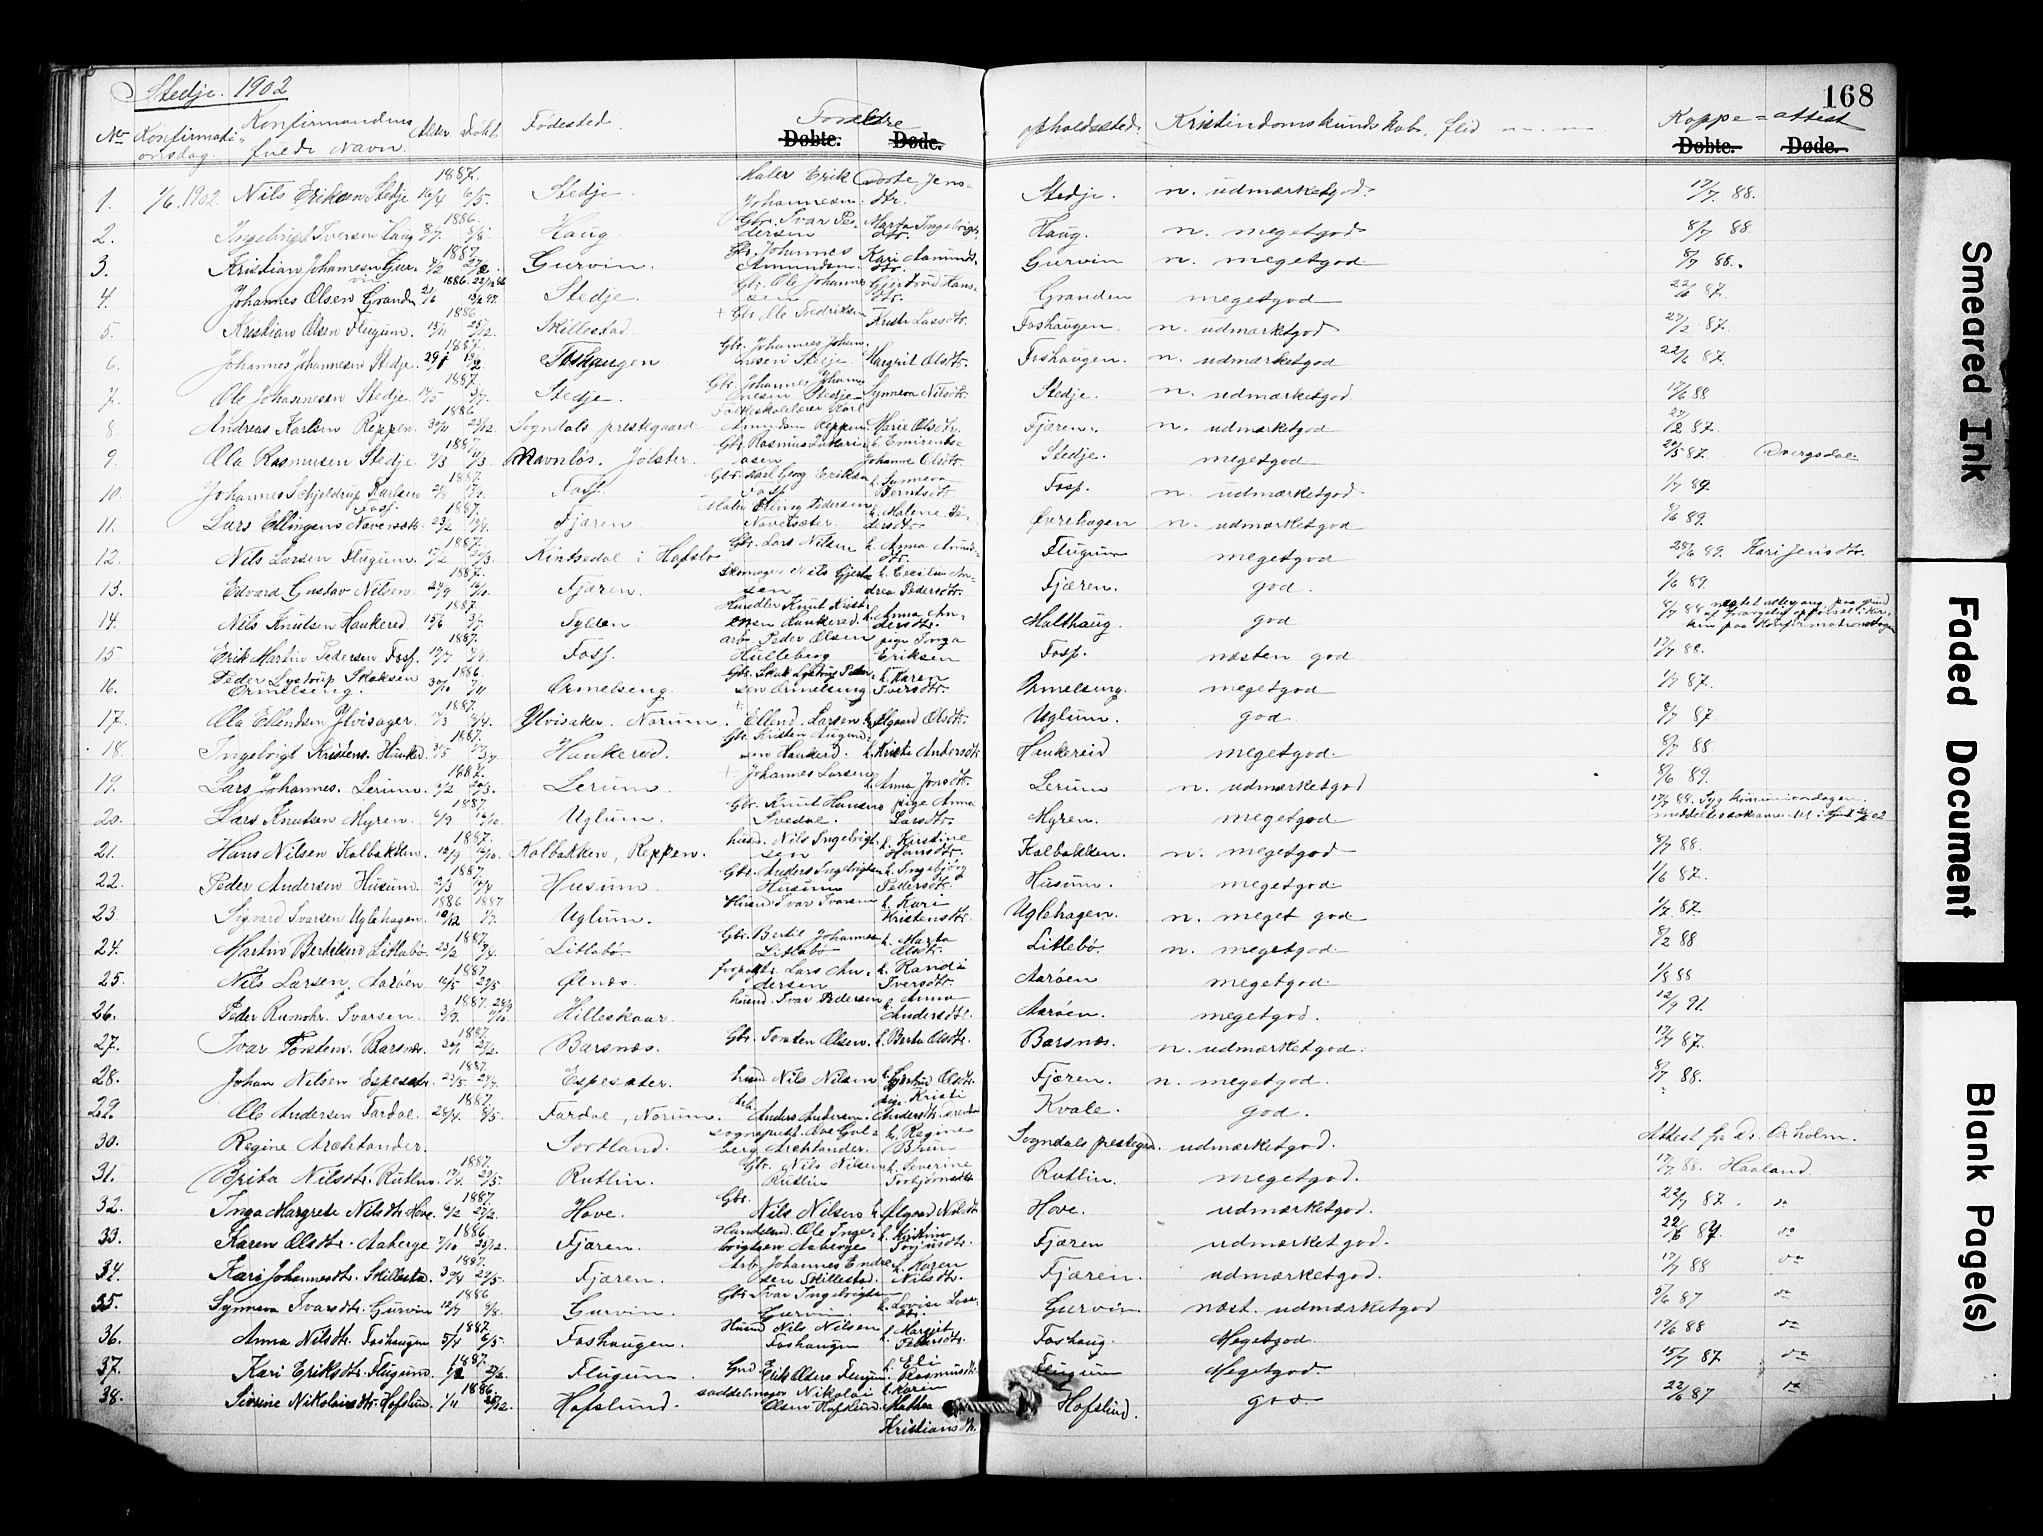 Stedje. 1902
168
No Konfirmationsdag. Konfirmandens fulde Navn. Alder. Døbt Fødested. Forældre Døbte. Døde. opholdssted. Kristindomskundskab, flid Koppe-attest Døbte. Døde.
1. 1/6.1902. Nils Eriksen Stedje 16/4 1887. 6/5. Stedje. Maler Erik Johannesen. Dorte Jensdtr. Stedje. n. udmærketgod 17/7 88.
2. Ingebrigt Iversen Haug 8/7 1886. 8/8 Haug. Gbr. Ivar Pedersen Marta Ingebrigtsdtr. Haug. n. megetgod 8/7 88
3. Kristian Johannesen Gurvin 4/2 1887. 27/2. Gurvin. Gbr. Johannes Amundsen. Kari Aamundsdtr. Gurvin n. megetgod 8/7 88.
4. Johannes Olsen Granden 21/6 1886. Stedje. Gbr. Ole Johannesen Gjertrud Hansdtr. Granden megetgod 22/6 87.
5. Kristian Olsen Flugum. 13/11 1886 25/12. Skillestad + Gbr. Ole Fredriksen Kristi Lassdtr. Foshaugen. n. udmærketgod 27/2 87.
6. Johannes Johannesen Stedje. 29/1 1887. 13/2 Foshaugen Gbr. Johannes Johannesen Stedje Margrit Olsdtr. Foshaugen. n. udmærketgod 22/6 87.
7. Ole Johannesen Stedje. 1887 3/7. Stedje. Gbr. Johannes Johannesen Stedje Synneva Nilsdtr. Stedje. n. udmærketgod 17/6 88
8. Andreas Karlsen Reppen. 30/11 1886 25/12. Sogndals prestegaard Folkeskolelærer Karl Amundsen Reppen Marie Olsdtr. Fjæren. n. udmærketgod 27/2 87.
9. Ola Rasmusen Stedje 1887 Navnløs. Jølster. Gbr. Rasmus Zakariasen h. Emirentse Johanne Olsdtr. Stedje. megetgod 20/5 87. Dvergsdal
10. Johannes Schjeldrup Karlsen Foss. 1887. Foss. Gbr. Karl Georg Eriksen Foss h. Synneva Berntsdtr. Foss. n. udmærketgod 1/7 89.
11. Lars Ellingsen Naversæter. 23/2 1887. Fjæren. Maler Elling Pedersen Naversæter. h. Malene Pedersdtr. Øvrehagen n. udmærketgod 8/6 89.
12. Nils Larsen Flugum. 17/2 1887 20/3. Kintsedal i Hafslo Gbr. Lars Nilsen h. Anna Amundsdtr. Flugum megetgod 28/6 89. Kari Jensdtr.
13. Edvard Gustav Nilsen 24/9 1887. 16/10. Fjæren. Skomager Nils Gjertsen h. Cecilia Andrea Pedersdtr. Fjæren. god. 1/6 89.
14. Nils Knutsen Haukered 15/6 1887 3/7. Fylten Handler Knut Kristensen Haukered. h. Anna Andersdtr. Malthaug. god 8/7 88 negtet altergang paa grund af forargelig opførsel i kirken paa konfirmationsdagen
15. Erik Martin Pedersen Foss. 19/7 1887. Foss. arb. Peder Olsen Hulleberg pige Inga Eriksen Foss. næsten god 17/7 88.
16. Peder Lystrup Skaksen Ormelseng. 30/10 1886. 7/11 Ormelseng. Gbr. Skak Lystrup Pedersen Ormelseng h. Karen Iversdtr. Ormelseng. megetgod 1/7 87.
17. Ola Ellendsen Ylvisager. 1887 Ylvisaker. Norum. + Ellend Larsen h. Algaard Olsdtr. Uglum. god 8/7 87
18. Ingebrigt Kristens. Hauked. 31/5 1887. Haukered. Gbr. Kristen Augundsen Haukerd. h. Kristi Andersdtr. Haukereid megetgod. 8/7 88
19. Lars Johannes. Lerum. 1887. 20/3. Lerum. + Johannes Larsen h. Anna Jonsdtr. Lerum n. udmærketgod 8/6 89.
20. Lars Knutsen Myren. 6/9 1887. 16/10. Uglum. Gbr. Knut Hansen Svedal. pige Anna Larsdtr. Myren. megetgod 17/7 88.
21. Hans Nilsen Kalbakken. 13/9 1887. 16/10. Kalbakken, Reppen. husm. Nils Ingebrigtsen h. Kirstine Hansdtr. Kalbakken. n. megetgod 8/7 88.
22. Peder Andersen Husum. 2/3 1887. Husum. Gbr. Anders Ingebrigtsen Husum h. Ingebjørg Pedersdtr. Husum. megetgod 1/6 87.
23. Sigvard Ivarsen Uglehagen. 1886 1887 Uglum. Husmd Ivar Ivarsen h. Kari Kristensdtr. Uglehagen. n. meget god 1/7 87.
24. Martin Bertelsen Litlabø. 23/2 1887. Litlabø. Gbr. Bertil Johannesen Litlabø h. Marta Olsdtr. Litlebø. n. megetgod 8/2 88
25. Nils Larsen Aarøen. 16/5 1887 29/5 Ølnæs. Lars Andersen h. Randi Iversdtr. Aarøen megetgod 1/8 88
26. Peder Rumohr. Ivarsen. 3/9. 1887. Hilleskaar. husmd. Ivar Pedersen h. Anna Andersdtr. Aarøen. megetgod. 12/9 91.
27. Ivar Torstens. Barsnæs. 1887. 27/2. Barsnæs. Gbr. Torsten Olsen. h. Berta Olsdtr. Barsnæs. n. udmærketgod. 17/7 87.
28. Johan Nilsen Espesæter. 23/5. 1887. Espesæter. husmd Nils Nilsen h. Gjertrud Olsdtr. Fjæren. n. megetgod. 8/7 88.
29. Ole Andersen Fardal. 28/4. 1887. 8/5. Fardal, Norum. Arb. Anders Andersen. pige Kristi Andersdtr. Kvale. god.
30. Regine Arctander. Sortland. sogneprest Ove Guldberg Arctander. h. Regine Brun Sogndals prestegrd. udmærketgod. Attest fra dr. Oxholm.
31. Brita Nilsdtr. Rutlin. 1887. 29/5. Rutlin. Gbr. Nils Nilsen Rutlin h. Severine Torbjørnsdtr. Rutlin. megetgod. 17/7 88. Haaland.
32. Inga Margrete Nilsdtr. Hove. 6/2 1887. 27/2. Hove. Gbr. Nils Nilsen h. Algaard Nilsdtr. Hove. udmærketgod. 22/7 87. do
33. Karen Olsdtr. Aaberge 1886 25/12. Fjæren. Handelsmd. Ole Ingebrigtsen Aaberge h. Kristina Torjusdtr. Fjæren udmærketgod. 22/6 87. do
34. Kari Johannesdtr. Skillesta 1887. 29/5. Fjæren. Arb. Johannes Endresen Skillestad. h. Karen Nilsdtr. Fjæren. udmærketgod. 17/7 88 do
35. Synneva Ivarsdtr. Gurvin 1886 8/8. Gurvin. Gbr. Ivar Ingebrigtsen Gurvin h. Lovise Gurvin næst. udmærketgod 5/6 87 do
36. Anna Nilsdtr. Foshaugen 5/4 1887. 6/5. Foshaugen. Husmd Nils Nilsen Foshaugen h. Margrit Pedersdtr. Foshaug. Megetgod. 17/6 88 do
37. Kari Eriksdtr. Flugum. 1887. 27/2. Flugum. Gmd Erik Olsen Flugum h. Eli Rasmusdtr. Flugum Megetgod. 15/7 87 do
38. Sivrine Nikolaisdtr. Hofslun. 1/11 1886. 25/12. Hofslund. saddelmager Nikolai Olsen Hofslund h. Karen Mathea Kristiansdtr. Hofslund. god. 22/6 87 do
Smeared Ink
Faded Document
Blank Page(s)